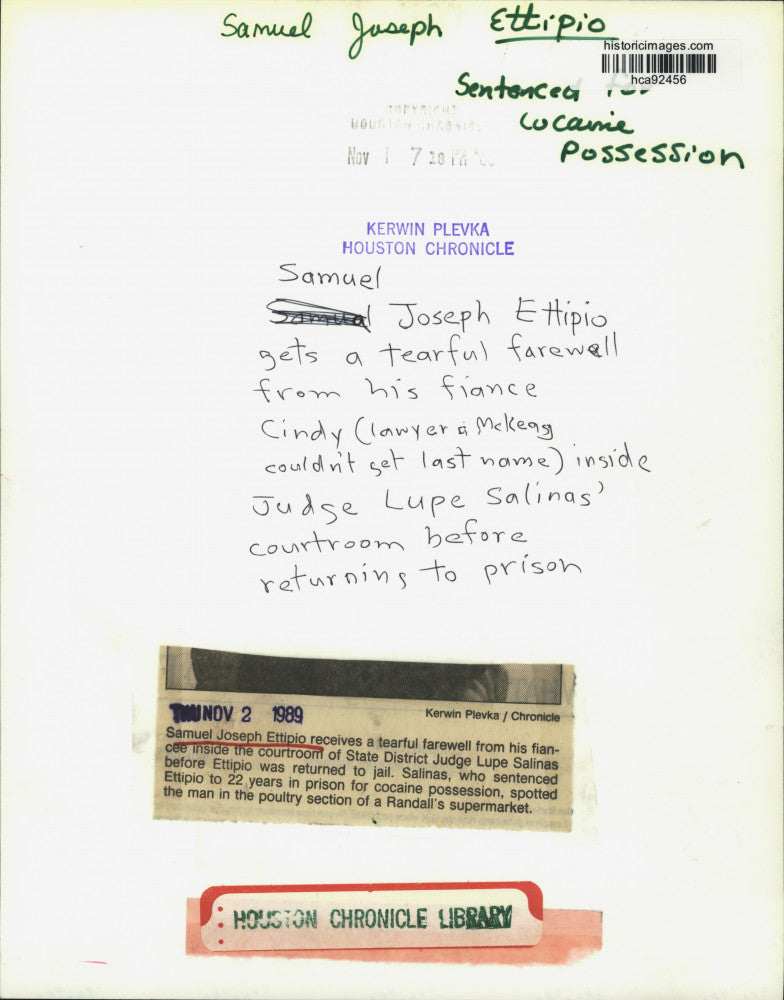 Samuel Joseph Ettipio
historicimages.com
hca92456
Sentenced for
Cocaine
Possession
COPYRIGHT
HOUSTON CHRONICLE
Nov 1 7 18 PM
KERWIN PLEVKA
HOUSTON CHRONICLE
Samuel
Joseph Ettipio
gets a tearful farewell
from his fiance
Cindy (lawyer McKeag
couldn't get last name) inside
Judge Lupe Salinas'
courtroom before
returning to prison
THU NOV 2 1989
Kerwin Plevka / Chronicle
Samuel Joseph Ettipio receives a tearful farewell from his fian-
cee inside the courtroom of State District Judge Lupe Salinas
before Ettipio was returned to jail. Salinas, who sentenced
Ettipio to 22 years in prison for cocaine possession, spotted
the man in the poultry section of a Randall's supermarket.
HOUSTON CHRONICLE LIBRARY